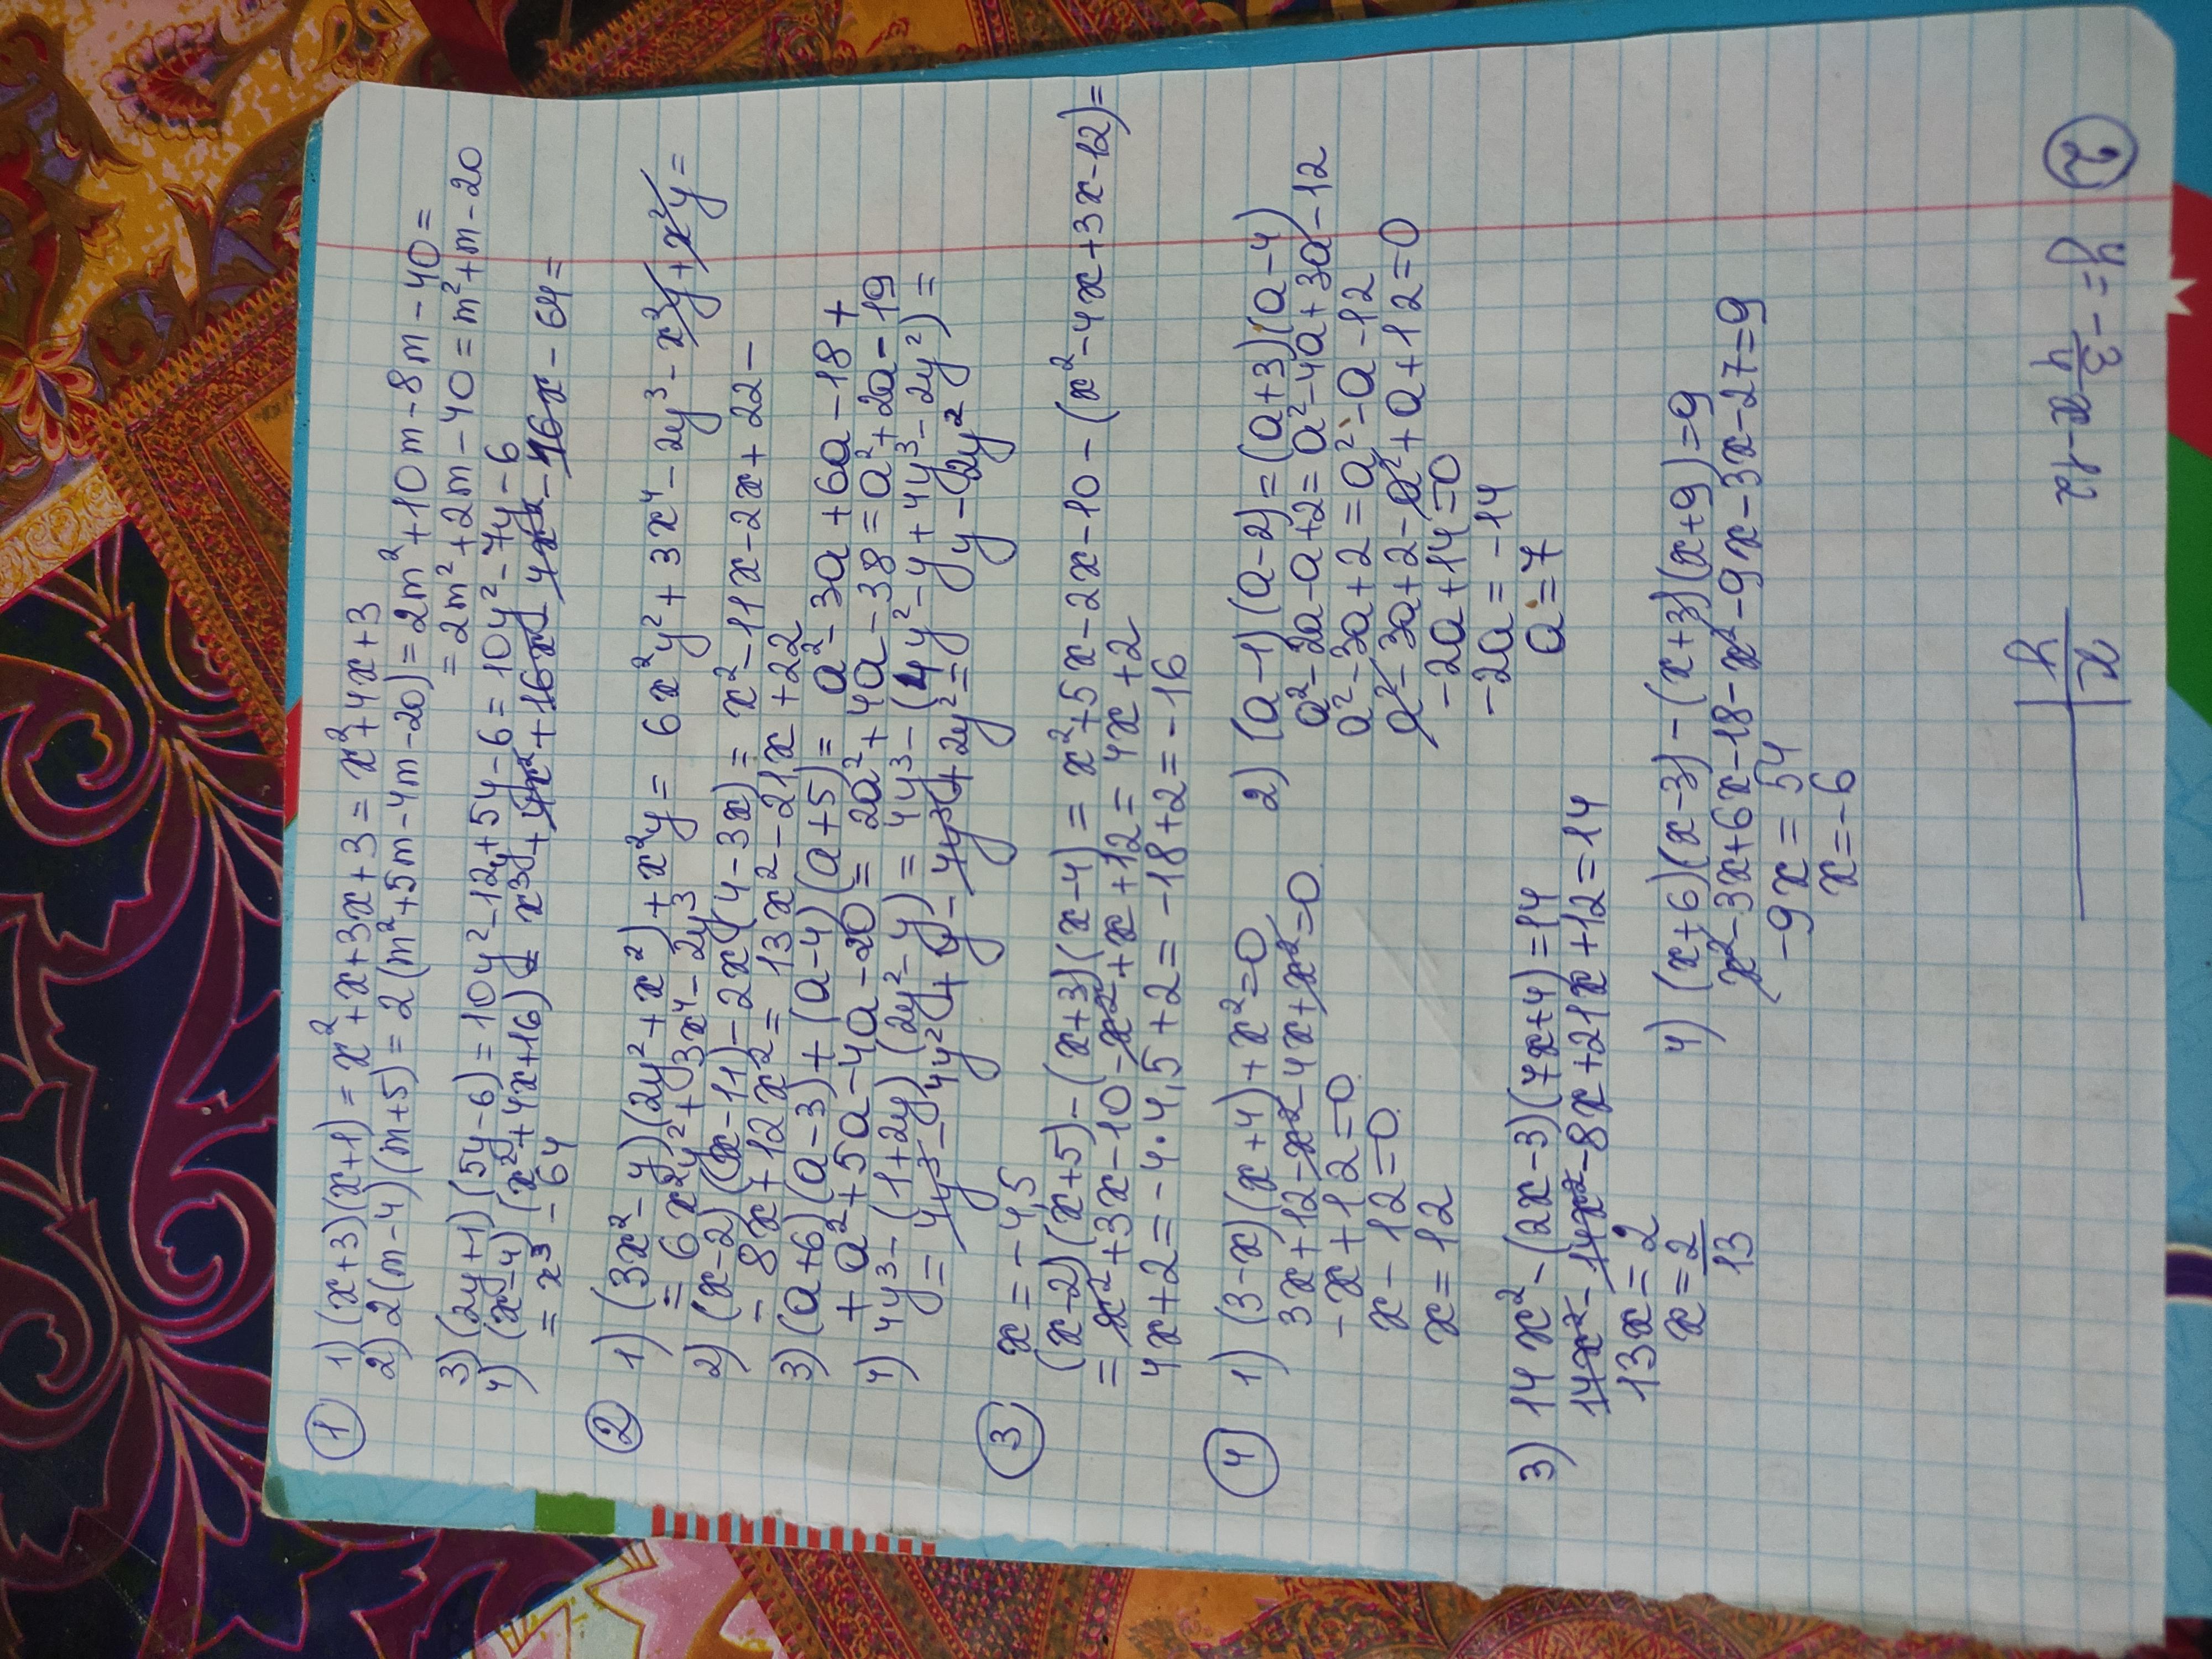 ① 1) (x+3)(x+1) = x²+x+3x+3 = x²+4x+3
2) 2(m-4)(m+5) = 2(m²+5m-4m-20) = 2m²+10m-8m-40 =
= 2m²+2m-40 = m²+m-20
3) (2y+1)(5y-6) = 10y²-12y+5y-6 = 10y²-7y-6
4) (x-4)(x²+4x+16) = x³+4x²+16x-4x²-16x-64 =
= x³-64
② 1) (3x²-y)(2y²+x²)+x²y = 6x²y²+3x⁴-2y³-x²y+x²y =
= 6x²y²+3x⁴-2y³
2) (x-2)(x-11)-2x(4-3x) = x²-11x-2x+22-
-8x+12x² = 13x²-21x+22
3) (a+6)(a-3)+(a-4)(a+5) = a²-3a+6a-18+
+a²+5a-4a-20 = 2a²+4a-38 = a²+2a-19
4) 4y³-(1+2y)(2y²-y) = 4y³-(4y²-y+4y³-2y²) =
= 4y³-4y²+y-4y³+2y² = y-2y²
③ x = -4,5
(x-2)(x+5)-(x+3)(x-4) = x²+5x-2x-10-(x²-4x+3x-12) =
= x²+3x-10-x²+x+12 = 4x+2
4x+2 = -4·4,5+2 = -18+2 = -16
④ 1) (3-x)(x+4)+x²=0
3x+12-x²-4x+x²=0
-x+12=0
x-12=0
x=12
2) (a-1)(a-2)=(a+3)(a-4)
a²-2a-a+2=a²-4a+3a-12
a²-3a+2=a²-a-12
a²-3a+2-a²+a+12=0
-2a+14=0
-2a=-14
a=7
3) 14x²-(2x-3)(7x+4)=14
14x²-14x²-8x+21x+12=14
13x=2
x=2
13
4) (x+6)(x-3)-(x+3)(x+9)=9
x²-3x+6x-18-x²-9x-3x-27=9
-9x=54
x=-6
② y=-3/4x-12
x
y